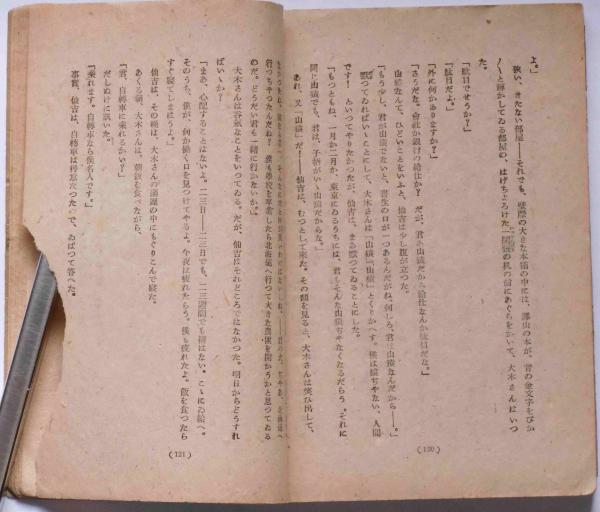 よ。」
狹い、きたない部屋――それでも、壁際の大きな本箱の中には、澤山の本が、背の金文字をぴか
〳〵と輝かしてゐる部屋の、はげちよろけた一閑張の机の前にあぐらをかいて、大木さんはいつ
た。
「駄目でせうか？」
「駄目だよ。」
「外に何かありますか？」
「さうだな。會社か銀行の給仕か？　だが、君は山猿だから給仕なんか駄目だな。」
山猿なんて、ひどいことをいふと、仙吉は少し腹が立つた。
「もう少し、君が山猿でないと、書生の口が一つあるんだがね、何しろ、君は山猿なんだから――。」
默つてゐればいゝことにして、大木さんは「山猿、山猿」とくりかへす。僕は猿ぢやない、人間
です！　といつてやりたかつたが、仙吉は、まあ默つてゐることにした。
「もつともね、一月か二月か、東京にゐるうちには、君もそんな山猿ぢやなくなるだらう。それに
同じ山猿でも、君は、子柄がいゝ山猿だからな。」
あれ、又「山猿」だ！――仙吉は、むつとして來た。その顏を見ると、大木さんは笑ひ出して、
(120)
行つちやつたんだね？　僕も學校を卒業したら北海道へ行つて大きな農園を開かうかと思つてゐる
のだ。どうだい君も一緒に行かないか。」
大木さんは呑氣なことをいつてゐる。だが、仙吉はそれどころではなかつた。明日からどうすれ
ばいゝか？
「まあ、心配することはないよ。二三日――二三日でも、二三週間でも構はない。こゝにゐ給へ。
そのうち、僕が、何か働く口を見つけてやるよ。今夜は疲れたらう。僕も疲れたよ。飯を食つたら
すぐ寢てしまはうよ。」
仙吉は、その晩は、大木さんの蒲團の中にもぐりこんで寢た。
あくる朝、大木さんは、朝飯を食べながら、
だしぬけに訊いた。
「君、自轉車に乘れるかい？」
「乘れます。自轉車なら僕名人です。」
事實、仙吉は、自轉車は得意だつたので、ゐばつて答へた。
(121)